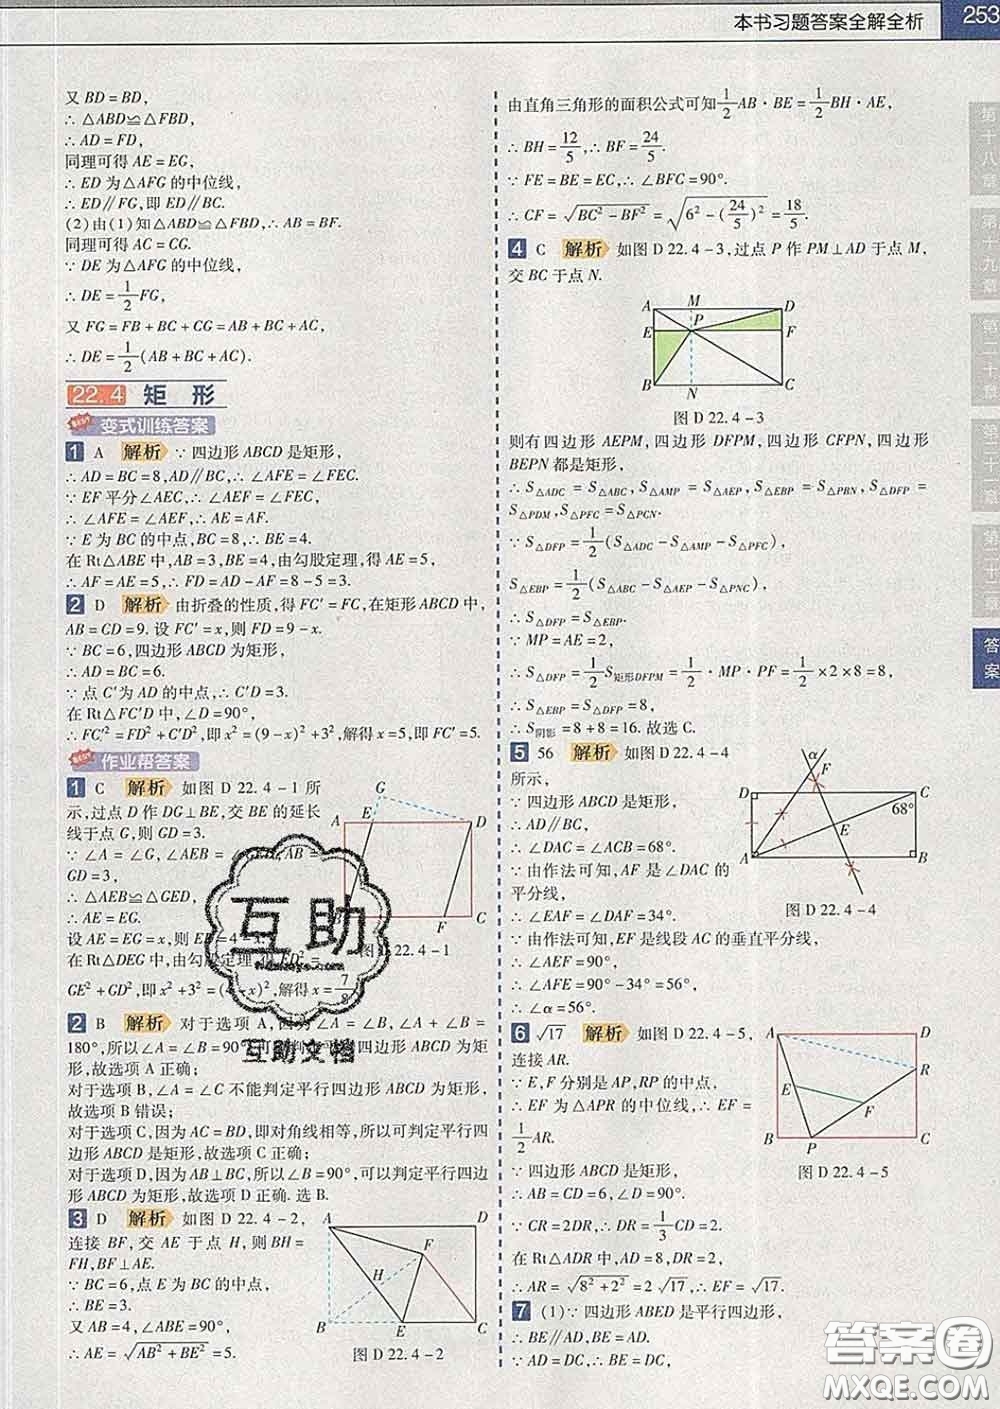 本书习题答案全解全析
253
又BD=BD,
∴△ABD≌△FBD,
∴AD=FD,
同理可得AE=EG,
∴ED为△AFG的中位线,
∴ED∥FG,即ED∥BC.
(2)由(1)知△ABD≌△FBD,∴AB=BF.
同理可得AC=CG.
∵DE为△AFG的中位线,
∴DE=1/2FG,
又FG=FB+BC+CG=AB+BC+AC,
∴DE=1/2(AB+BC+AC).
22.4 矩形
变式训练答案
1 A 解析 ∵四边形ABCD是矩形,
∴AD=BC=8,AD∥BC,∴∠AFE=∠FEC.
∵EF平分∠AEC,∴∠AEF=∠FEC,
∴∠AFE=∠AEF,∴AE=AF.
∵E为BC的中点,BC=8,∴BE=4.
在Rt△ABE中,AB=3,BE=4,由勾股定理,得AE=5,
∴AF=AE=5,∴FD=AD-AF=8-5=3.
2 D 解析 由折叠的性质,得FC′=FC,在矩形ABCD中,
AB=CD=9.设FC′=x,则FD=9-x.
∵BC=6,四边形ABCD为矩形,
∴AD=BC=6.
∵点C′为AD的中点,∴C′D=3.
在Rt△FC′D中,∠D=90°,
∴FC′²=FD²+C′D²,即x²=(9-x)²+3²,解得x=5,即FC′=5.
作业帮答案
1 C 解析 如图D22.4-1所
示,过点D作DG⊥BE,交BE的延长
线于点G,则GD=3.
∵∠A=∠G,∠AEB=
AB=
GD=3,
∴△AEB≌△GED,
∴AE=EG.
设AE=EG=x,则ED=4-x,
在Rt△DEG中,由勾股定理,得ED²=
GE²+GD²,即x²+3²=(4-x)²,解得x=7/8.
G
E
A
D
B
F
C
图D22.4-1
2 B 解析 对于选项A,因为∠A=∠B,∠A+∠B=
180°,所以∠A=∠B=90°,
故选项A正确;
对于选项B,∠A=∠C不能判定平行四边形ABCD为矩形,
故选项B错误;
对于选项C,因为AC=BD,即对角线相等,所以可判定平行四
边形ABCD是矩形,故选项C正确;
对于选项D,因为AB⊥BC,所以∠B=90°,可以判定平行四边
形ABCD为矩形,故选项D正确.选B.
3 D 解析 如图D22.4-2,
连接BF,交AE于点H,则BH=
FH,BF⊥AE.
∵BC=6,点E为BC的中点,
∴BE=3.
又AB=4,∠ABE=90°,
∴AE=√(AB²+BE²)=5.
A
D
F
H
B
E
C
图D22.4-2
由直角三角形的面积公式可知1/2AB·BE=1/2BH·AE,
∴BH=12/5,∴BF=24/5.
∵FE=BE=EC,∴∠BFC=90°.
∴CF=√(BC²-BF²)=√(6²-(24/5)²)=18/5.
4 C 解析 如图D22.4-3,过点P作PM⊥AD于点M,
交BC于点N.
A
M
D
P
E
F
B
N
C
图D22.4-3
则有四边形AEPM,四边形DFPM,四边形CFPN,四边形
BEPN都是矩形,
∴S△ADC=S△ABC,S△AMP=S△AEP,S△EBP=S△PBN,S△DFP=
S△PDM,S△PFC=S△PCN.
∵S△DFP=1/2(S△ADC-S△AMP-S△PFC),
S△EBP=1/2(S△ABC-S△AEP-S△PNC),
∴S△DFP=S△EBP.
∵MP=AE=2,
∴S△DFP=1/2S矩形DFPM=1/2·MP·PF=1/2×2×8=8,
∴S△EBP=S△DFP=8,
∴S阴影=8+8=16.故选C.
5 56 解析 如图D22.4-4
所示,
∵四边形ABCD是矩形,
∴AD∥BC,
∴∠DAC=∠ACB=68°.
∵由作法可知,AF是∠DAC的
平分线,
∴∠EAF=∠DAF=34°.
∵由作法可知,EF是线段AC的垂直平分线,
∴∠AEF=90°,
∴∠AFE=90°-34°=56°,
∴∠α=56°.
α
F
D
C
68°
E
A
B
图D22.4-4
6 √17 解析 如图D22.4-5,
连接AR.
∵E,F分别是AP,RP的中点,
∴EF为△APR的中位线,∴EF=
1/2AR.
∵四边形ABCD是矩形,
∴AB=CD=6,∠D=90°,
∵CR=2DR,∴DR=1/3CD=2.
在Rt△ADR中,AD=8,DR=2,
∴AR=√(8²+2²)=2√17,∴EF=√17.
A
D
R
E
F
B
P
C
图D22.4-5
7 (1)∵四边形ABED是平行四边形,
∴BE∥AD,BE=AD.
∵AD=DC,∴BE=DC,
第十八章
第十九章
第二十章
第二十一章
第二十二章
答案
互助
互助文档
答案圈
MXQE.COM